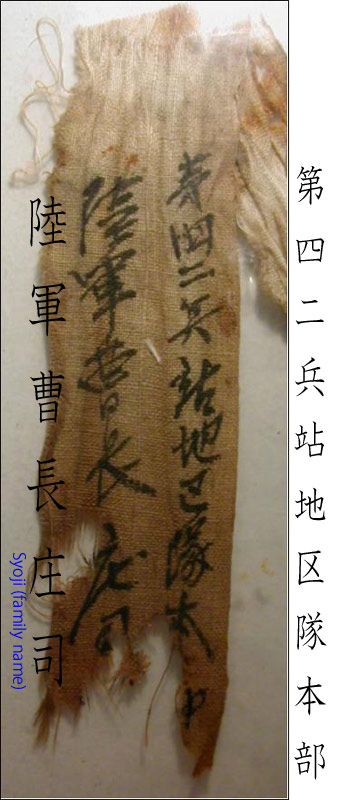 第四二兵站地区隊本部
第四二兵站地区隊本部
陸軍曹長 庄司
陸軍曹長庄司
Syoji (family name)